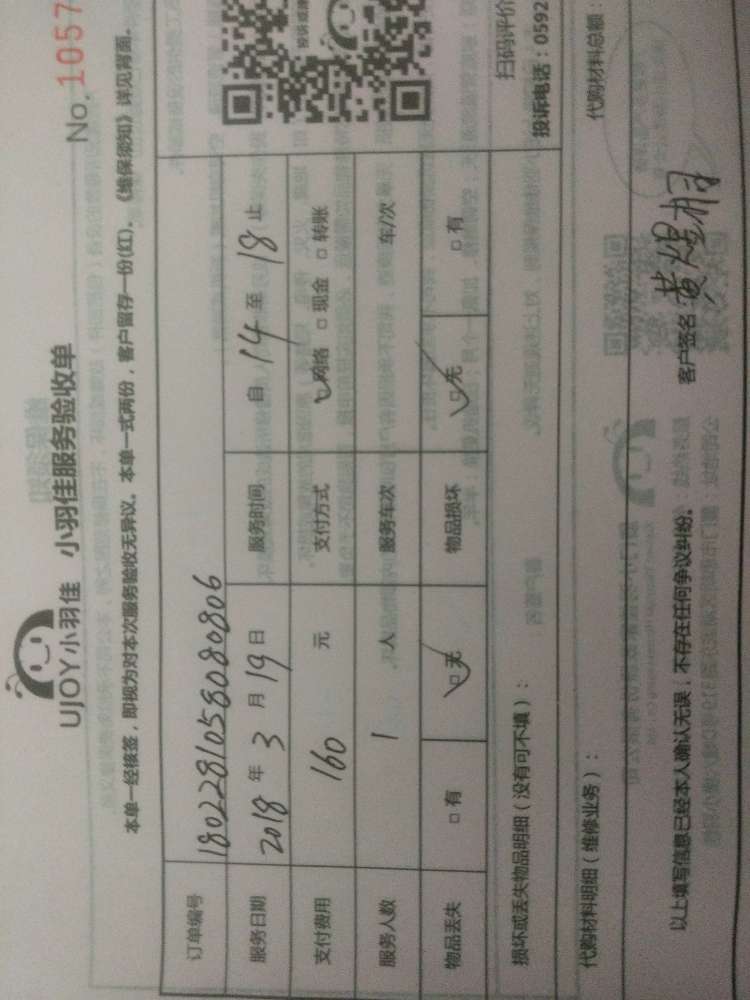 UJOY小羽佳 小羽佳服务验收单
No. 1057
本单一经核签，即视为对本次服务验收无异议。本单一式两份，客户留存一份(红)。《维保须知》详见背面。
订单编号 1802281058080806
服务日期 2018 年 3 月 19 日 服务时间 自 14 至 18 止
支付费用 160 元 支付方式 网络 □ 现金 □ 转账
服务人数 1 人 服务车次 车/次
物品丢失 □ 有 □ 无 物品损坏 □ 无 □ 有
损坏或丢失物品明细（没有可不填）：
扫码评价
投诉电话：0592
代购材料明细（维修业务）：
代购材料总额：
以上填写信息已经本人确认无误，不存在任何争议纠纷。
客户签名：黄煜桐